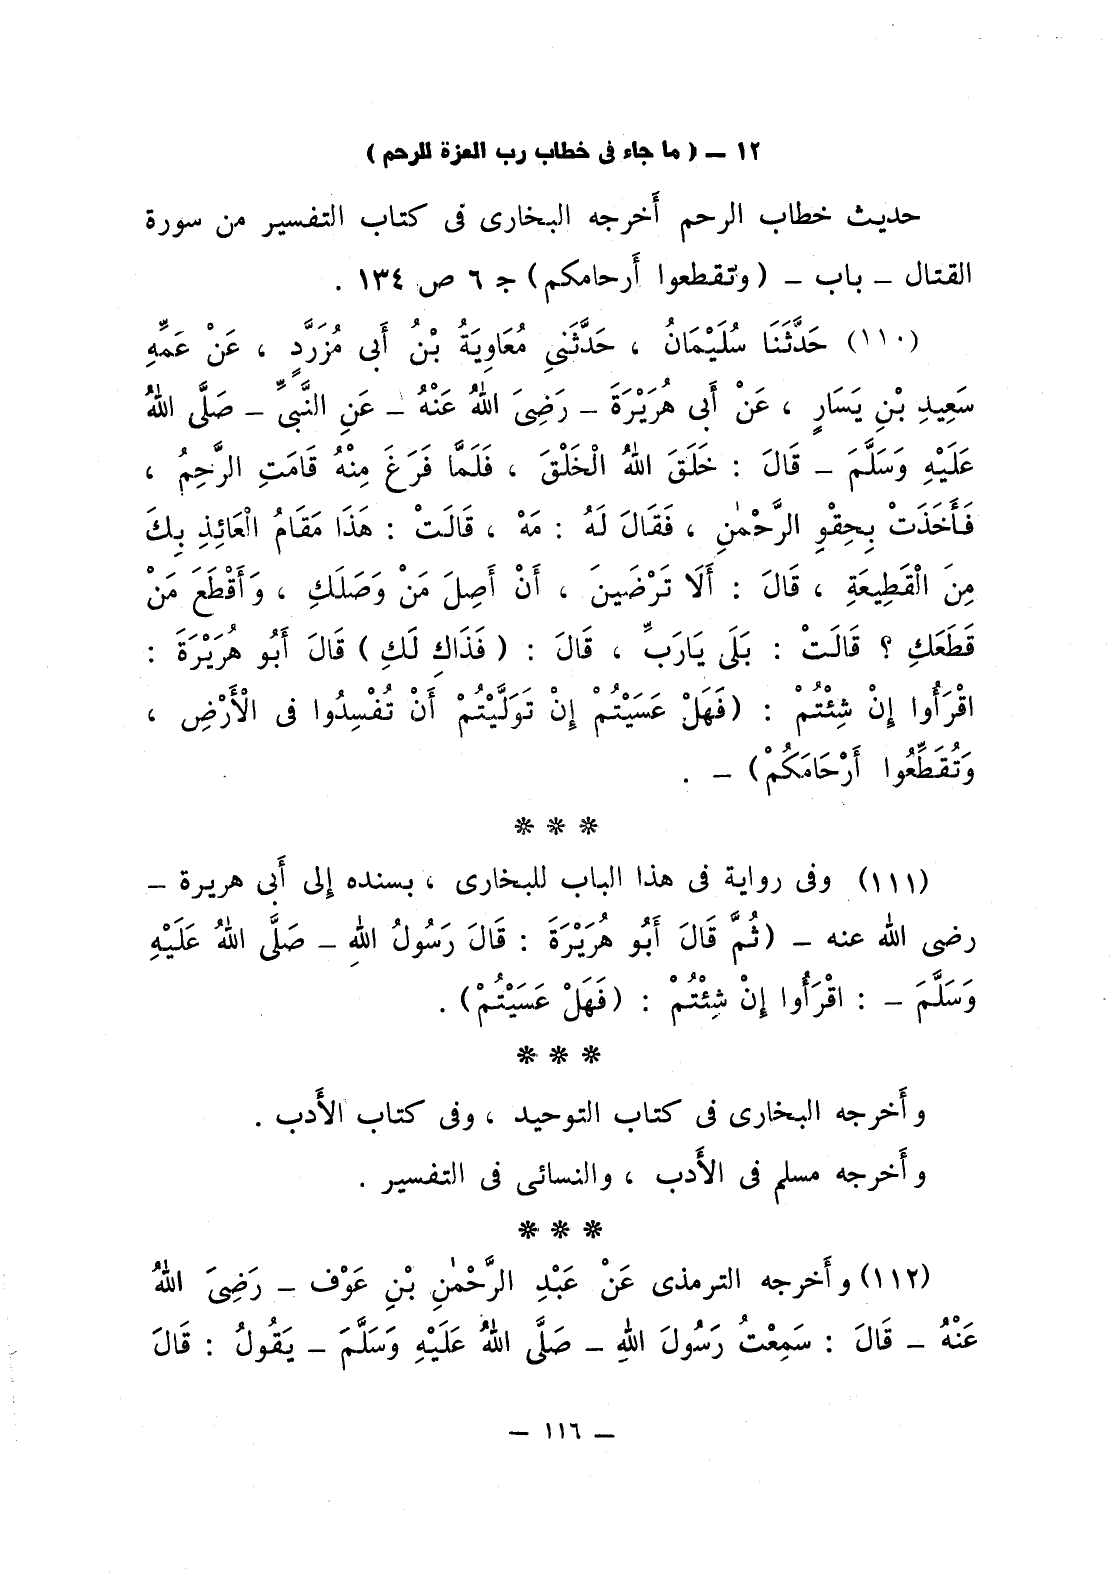 ١٢ ــ ( ما جاء فى خطاب رب العزة للرحم )
حديث خطاب الرحم أخرجه البخارى فى كتاب التفسير من سورة
القتال ــ باب ــ (وتقطعوا أرحامكم) جـ ٦ ص ١٣٤ .
(١١٠) حَدَّثَنَا سُلَيْمَانُ ، حَدَّثَنِي مُعَاوِيَةُ بْنُ أَبِى مُزَرَّدٍ ، عَنْ عَمِّهِ
سَعِيدِ بْنِ يَسَارٍ ، عَنْ أَبِى هُرَيْرَةَ ــ رَضِىَ اللهُ عَنْهُ ــ عَنِ النَّبِىِّ ــ صَلَّى اللهُ
عَلَيْهِ وَسَلَّمَ ــ قَالَ : خَلَقَ اللهُ الْخَلْقَ ، فَلَمَّا فَرَغَ مِنْهُ قَامَتِ الرَّحِمُ ،
فَأَخَذَتْ بِحِقْوِ الرَّحْمٰنِ ، فَقَالَ لَهُ : مَهْ ، قَالَتْ : هَذَا مَقَامُ الْعَائِذِ بِكَ
مِنَ الْقَطِيعَةِ ، قَالَ : أَلَا تَرْضَيْنَ ، أَنْ أَصِلَ مَنْ وَصَلَكِ ، وَأَقْطَعَ مَنْ
قَطَعَكِ ؟ قَالَتْ : بَلَى يَارَبِّ ، قَالَ : ( فَذَاكِ لَكِ ) قَالَ أَبُو هُرَيْرَةَ :
اقْرَأُوا إِنْ شِئْتُمْ : (فَهَلْ عَسَيْتُمْ إِنْ تَوَلَّيْتُمْ أَنْ تُفْسِدُوا فى الْأَرْضِ ،
وَتُقَطِّعُوا أَرْحَامَكُمْ) ــ .
*** 
(١١١) وفى رواية فى هذا الباب للبخارى ، بسنده إلى أبى هريرة ــ
رضى الله عنه ــ (ثُمَّ قَالَ أَبُو هُرَيْرَةَ : قَالَ رَسُولُ اللهِ ــ صَلَّى اللهُ عَلَيْهِ
وَسَلَّمَ ــ : اقْرَأُوا إِنْ شِئْتُمْ : (فَهَلْ عَسَيْتُمْ) .
***
وأخرجه البخارى فى كتاب التوحيد ، وفى كتاب الأدب .
وأخرجه مسلم فى الأدب ، والنسائى فى التفسير .
***
(١١٢) وأخرجه الترمذى عَنْ عَبْدِ الرَّحْمٰنِ بْنِ عَوْف ــ رَضِىَ اللهُ
عَنْهُ ــ قَالَ : سَمِعْتُ رَسُولَ اللهِ ــ صَلَّى اللهُ عَلَيْهِ وَسَلَّمَ ــ يَقُولُ : قَالَ
ــ ١١٦ ــ